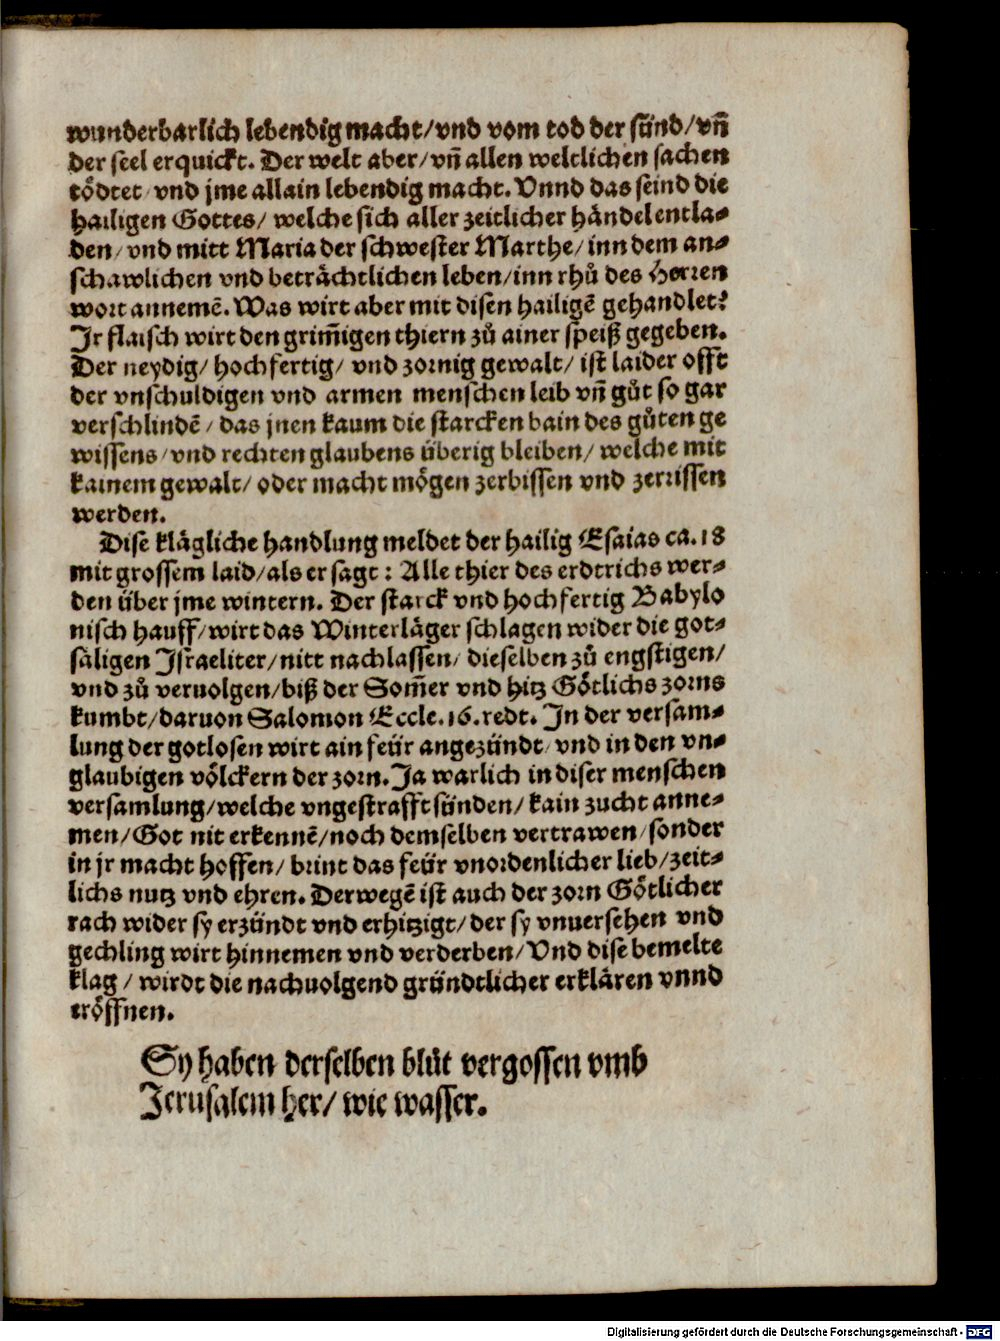 wunderbarlich lebendig macht/vnd vom tod der sünd/vñ
der seel erquickt. Der welt aber/vñ allen weltlichen sachen
tödtet/vnd jme allain lebendig macht. Vnnd das seind die
hailigen Gottes/ welche sich aller zeitlicher händel entla-
den/vnd mitt Maria der schwester Marthe/inn dem an-
schawlichen vnd beträchtlichen leben/inn rhů des Herren
wort annemẽ. Was wirt aber mit disen hailigẽ gehandlet?
Jr flaisch wirt den grim̃igen thiern zů ainer speiß gegeben.
Der neydig/ hochfertig/ vnd zornig gewalt/ ist laider offt
der vnschuldigen vnd armen menschen leib vñ gůt so gar
verschlindẽ/das jnen kaum die starcken bain des gůten ge
wissens/vnd rechten glaubens überig bleiben/welche mit
kainem gewalt/oder macht mögen zerbissen vnd zerrissen
werden.
Dise klägliche handlung meldet der hailig Esaias ca. 18
mit grossem laid/als er sagt: Alle thier des erdtrichs wer-
den über jme wintern. Der starck vnd hochfertig Babylo
nisch hauff/wirt das Winterläger schlagen wider die got-
säligen Israeliter/nitt nachlassen/dieselben zů engstigen/
vnd zů veruolgen/biß der Som̃er vnd hitz Götlichs zorns
kumbt/daruon Salomon Eccle.16.redt. In der versam-
lung der gotlosen wirt ain feür angezündt/vnd in den vn-
glaubigen völckern der zorn. Ja warlich in diser menschen
versamlung/welche vngestrafft sünden/kain zucht anne-
men/Got nit erkennẽ/noch demselben vertrawen/sonder
in jr macht hoffen/ brint das feür vnordenlicher lieb/zeit-
lichs nutz vnd ehren. Derwegẽ ist auch der zorn Götlicher
rach wider sy erzündt vnd erhitzigt/der sy vnuersehen vnd
gechling wirt hinnemen vnd verderben/Vnd dise bemelte
klag/ wirdt die nachuolgend gründtlicher erklären vnnd
eröffnen.
Sy haben derselben blůt vergossen vmb
Jerusalem her/ wie wasser.
Digitalisierung gefördert durch die Deutsche Forschungsgemeinschaft - DFG